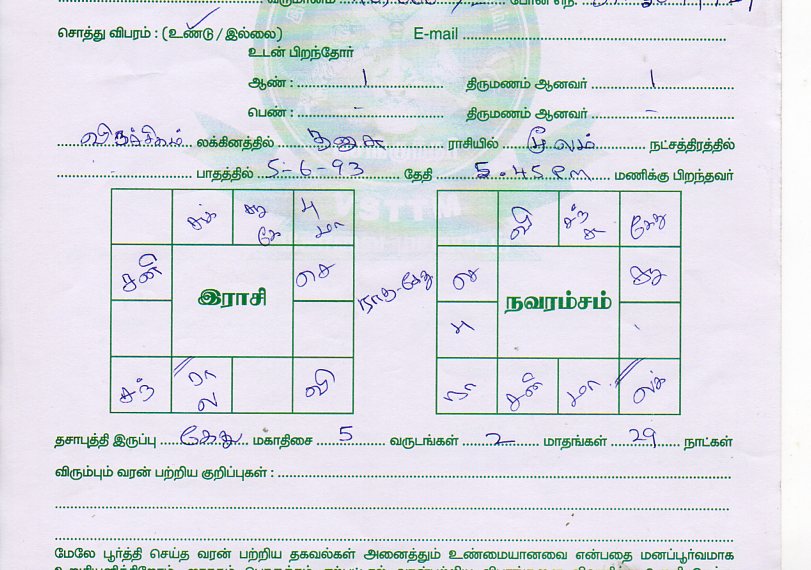 வருமானம் போன் எந்.
சொத்து விபரம் : (உண்டு / இல்லை) E-mail
உடன் பிறந்தோர்
ஆண் : 1 திருமணம் ஆனவர் 1
பெண் : - திருமணம் ஆனவர் -
விருச்சிகம் லக்கினத்தில் தனுசு ராசியில் மூலம் நட்சத்திரத்தில்
பாதத்தில் 5-6-93 தேதி 5.45 PM மணிக்கு பிறந்தவர்
சுக் சூ கே பு மா
சனி செ
இராசி
சந் ரா ல வி
ராகு-கேது
வி சந் சு கேது
ல சூ
நவரம்சம்
பு
சனி மா லக்
தசாபுத்தி இருப்பு கேது மகாதிசை 5 வருடங்கள் 2 மாதங்கள் 29 நாட்கள்
விரும்பும் வரன் பற்றிய குறிப்புகள் :
மேலே பூர்த்தி செய்த வரன் பற்றிய தகவல்கள் அனைத்தும் உண்மையானவை என்பதை மனப்பூர்வமாக